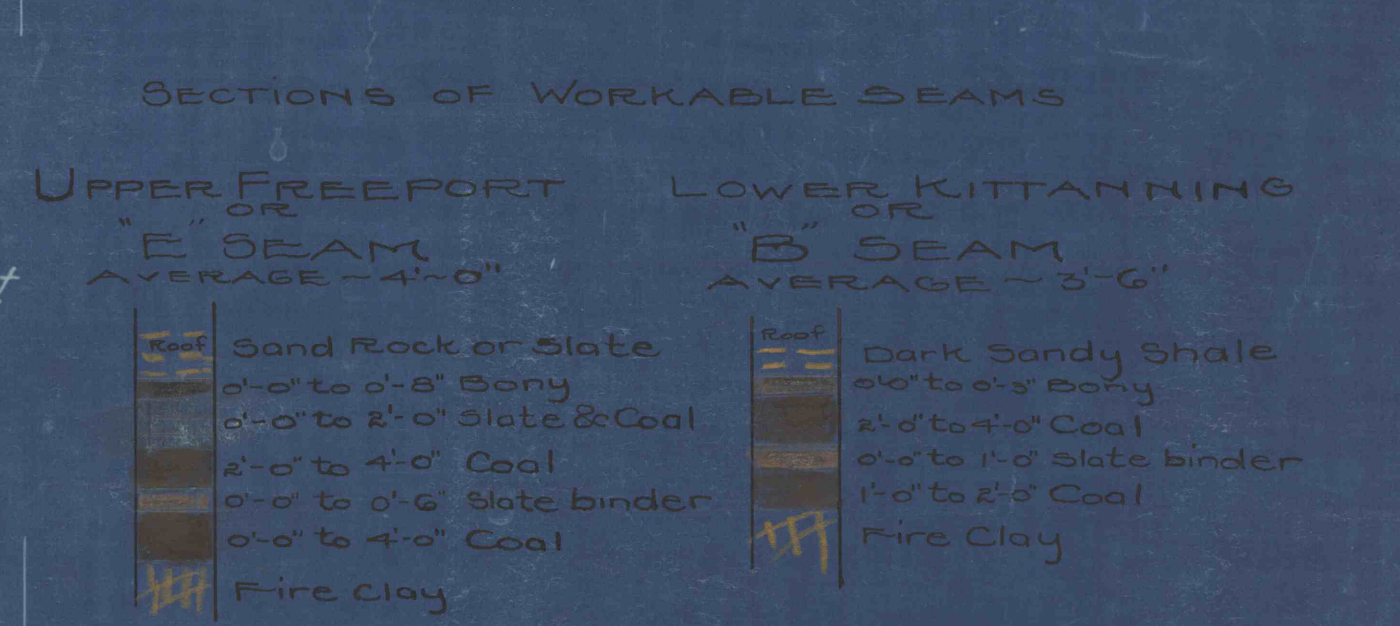 SECTIONS OF WORKABLE SEAMS
UPPER FREEPORT
OR
"E" SEAM
AVERAGE ~ 4'~0"
Roof Sand Rock or Slate
0'-0" to 0'-8" Bony
0'-0" to 2'-0" Slate & Coal
2'-0" to 4'-0" Coal
0'-0" to 0'-6" Slate binder
0'-0" to 4'-0" Coal
Fire Clay
LOWER KITTANNING
OR
"B" SEAM
AVERAGE ~ 3'-6"
Roof Dark Sandy Shale
0'-0" to 0'-3" Bony
2'-0" to 4'-0" Coal
0'-0" to 1'-0" Slate binder
1'-0" to 2'-0" Coal
Fire Clay